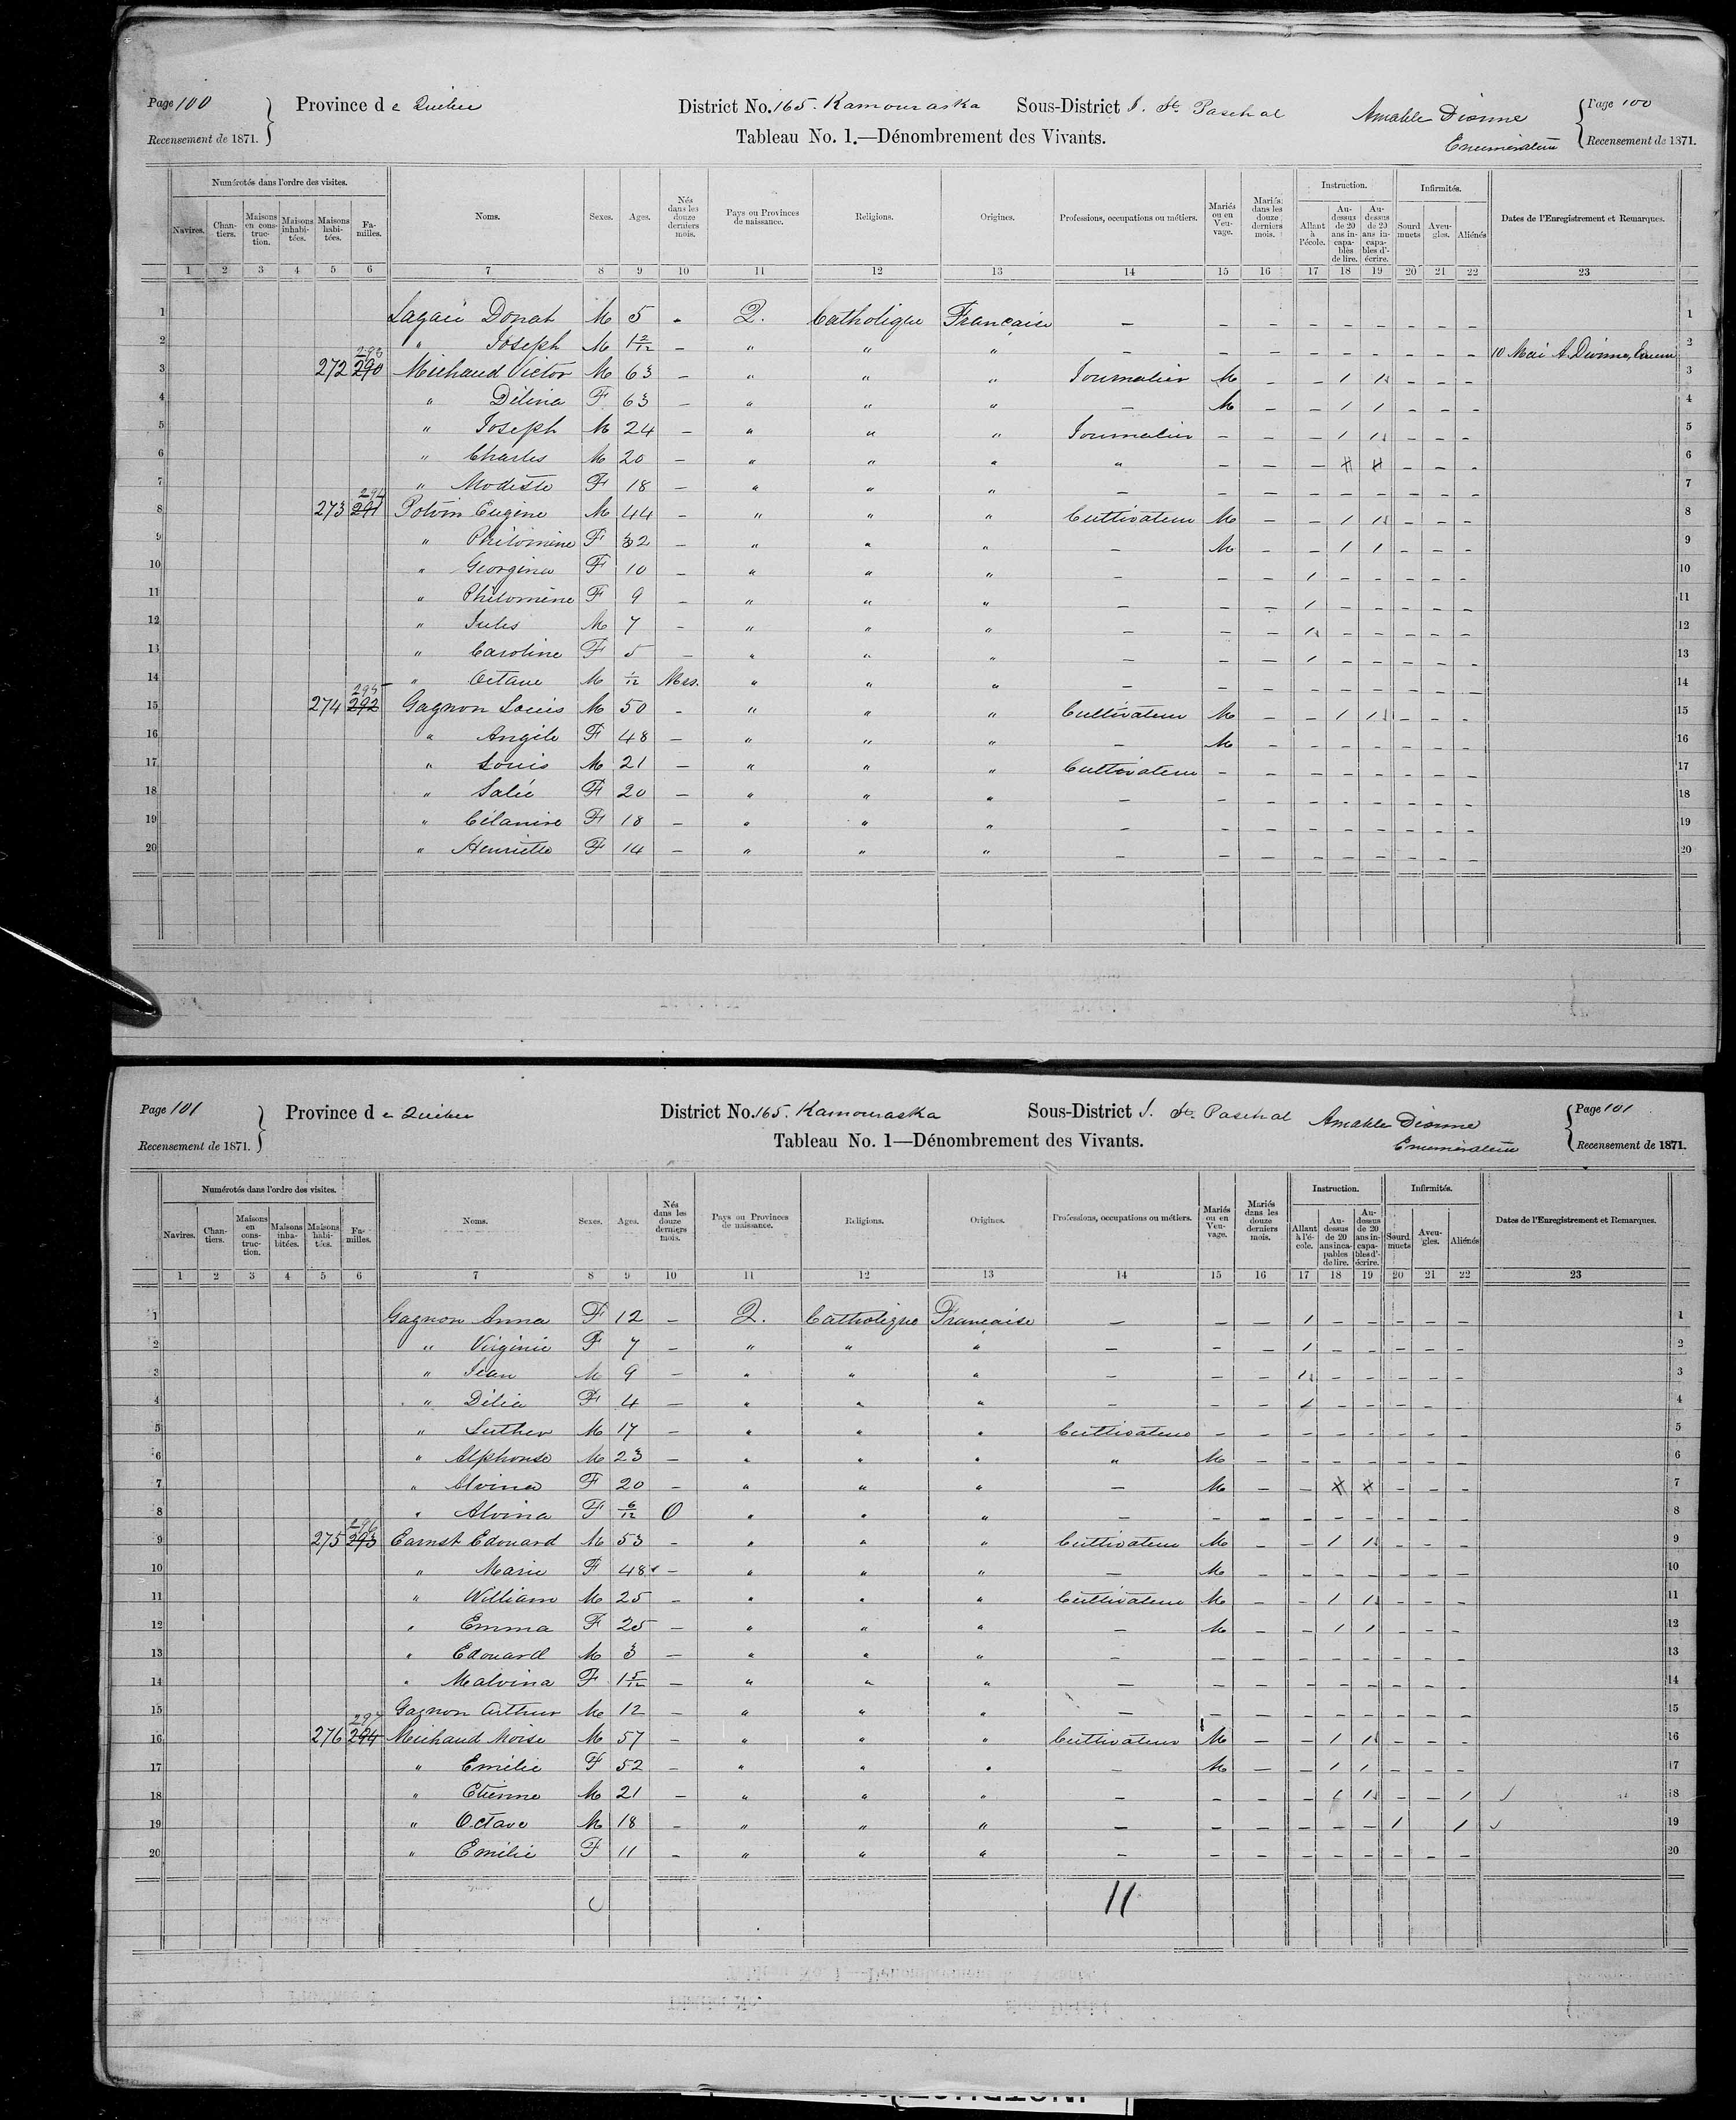 Page 100 Province de Québec District No. 165. Kamouraska Sous-District J. St. Paschal Amable Dionne Page 100
Recensement de 1871. Tableau No. 1.—Dénombrement des Vivants. Enumérateur Recensement de 1871.
Numérotés dans l'ordre des visites. Instruction. Infirmités.
Navires. Chantiers. Maisons en construction. Maisons inhabitées. Maisons habitées. Familles. Noms. Sexes. Ages. Nés dans les douze derniers mois. Pays ou Provinces de naissance. Religions. Origines. Professions, occupations ou métiers. Mariés ou en Veuvage. Mariés dans les douze derniers mois. Allant à l'école. Au-dessus de 20 ans incapables de lire. Au-dessus de 20 ans incapables d'écrire. Sourd muets Aveugles. Aliénés Dates de l'Enregistrement et Remarques.
1 2 3 4 5 6 7 8 9 10 11 12 13 14 15 16 17 18 19 20 21 22 23
1 Donat M 5 - Q. Catholique Française — - - - - - - - - 1
2 " Joseph M 1 2/12 - " " " — - - - - - - - - 10 Mai A. Dionne, Enum 2
3 272 293 290 Michaud Victor M 63 - " " " Journalier M - - 1 1 - - - 3
4 " Délina F 63 - " " " — M - - 1 1 - - - 4
5 " Joseph M 24 - " " " Journalier - - - 1 1 - - - 5
6 " Charles M 20 - " " " " - - - - - - 6
7 " Modeste F 18 - " " " — - - - - - - - - 7
8 273 294 291 Potvin Eugène M 44 - " " " Cultivateur M - - 1 1 - - - 8
9 " Philomène F 32 - " " " — M - - 1 1 - - - 9
10 " Georgina F 10 - " " " — - - 1 - - - - - 10
11 " Philomène F 9 - " " " — - - 1 - - - - - 11
12 " Jules M 7 - " " " — - - 1 - - - - - 12
13 " Caroline F 5 - " " " — - - 1 - - - - - 13
14 " Octave M 1/12 Mrs. " " " — - - - - - - - - 14
15 274 295 292 Gagnon Louis M 50 - " " " Cultivateur M - - 1 1 - - - 15
16 " Angèle F 48 - " " " — M - - - - - - - 16
17 " Louis M 21 - " " " Cultivateur - - - - - - - - 17
18 " Salie F 20 - " " " — - - - - - - - - 18
19 " Célanire F 18 - " " " — - - - - - - - - 19
20 " Henriette F 14 - " " " — - - - - - - - - 20
Page 101 Province de Québec District No. 165. Kamouraska Sous-District J. St. Paschal Amable Dionne Page 101
Recensement de 1871. Tableau No. 1—Dénombrement des Vivants. Enumérateur Recensement de 1871.
Numérotés dans l'ordre des visites. Instruction. Infirmités.
Navires. Chantiers. Maisons en construction. Maisons inhabitées. Maisons habitées. Familles. Noms. Sexes. Ages. Nés dans les douze derniers mois. Pays ou Provinces de naissance. Religions. Origines. Professions, occupations ou métiers. Mariés ou en Veuvage. Mariés dans les douze derniers mois. Allant à l'école. Au-dessus de 20 ans incapables de lire. Au-dessus de 20 ans incapables d'écrire. Sourd muets Aveugles. Aliénés Dates de l'Enregistrement et Remarques.
1 2 3 4 5 6 7 8 9 10 11 12 13 14 15 16 17 18 19 20 21 22 23
1 Gagnon Anna F 12 - Q. Catholique Française — - - 1 - - - - - 1
2 " Virginie F 7 - " " " — - - 1 - - - - - 2
3 " Jean M 9 - " " " — - - 1 - - - - - 3
4 " Délia F 4 - " " " — - - 1 - - - - - 4
5 " Luther M 17 - " " " Cultivateur - - - - - - - - 5
6 " Alphonse M 23 - " " " " M - - - - - - - 6
7 " Alvina F 20 - " " " — M - - - - - 7
8 " Alvina F 6/12 O " " " — - - - - - - - - 8
9 275 296 293 Earnst Edouard M 53 - " " " Cultivateur M - - 1 1 - - - 9
10 " Marie F 48 - " " " — M - - - - - - - 10
11 " William M 25 - " " " Cultivateur M - - 1 1 - - - 11
12 " Emma F 25 - " " " — M - - 1 1 - - - 12
13 " Edouard M 3 - " " " — - - - - - - - - 13
14 " Malvina F 1 5/12 - " " " — - - - - - - - - 14
15 Gagnon Arthur M 12 - " " " — - - - - - - - - 15
16 276 297 294 Michaud Moïse M 57 - " " " Cultivateur M - - 1 1 - - - 16
17 " Emélie F 52 - " " " — M - - 1 1 - - - 17
18 " Etienne M 21 - " " " — - - - 1 1 - - 1 18
19 " Octave M 18 - " " " — - - - - - 1 1 19
20 " Emélie F 11 - " " " — - - - - - - - - 20
11